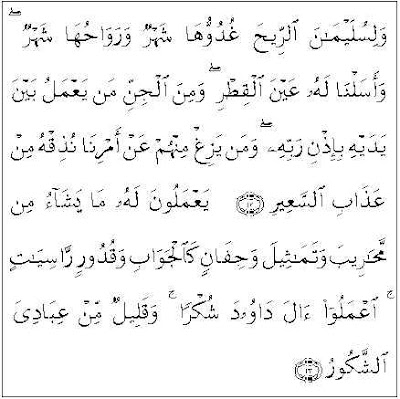 وَلِسُلَيْمَٰنَ ٱلرِّيحَ غُدُوُّهَا شَهْرٌ وَرَوَاحُهَا شَهْرٌ ۖ
وَأَسَلْنَا لَهُۥ عَيْنَ ٱلْقِطْرِ ۖ وَمِنَ ٱلْجِنِّ مَن يَعْمَلُ بَيْنَ
يَدَيْهِ بِإِذْنِ رَبِّهِۦ ۖ وَمَن يَزِغْ مِنْهُمْ عَنْ أَمْرِنَا نُذِقْهُ مِنْ
عَذَابِ ٱلسَّعِيرِ ۝١٢ يَعْمَلُونَ لَهُۥ مَا يَشَآءُ مِن
مَّحَٰرِيبَ وَتَمَٰثِيلَ وَجِفَانٍ كَٱلْجَوَابِ وَقُدُورٍ رَّاسِيَٰتٍ
ۚ ٱعْمَلُوٓا۟ ءَالَ دَاوُۥدَ شُكْرًا ۚ وَقَلِيلٌ مِّنْ عِبَادِىَ
ٱلشَّكُورُ ۝١٣